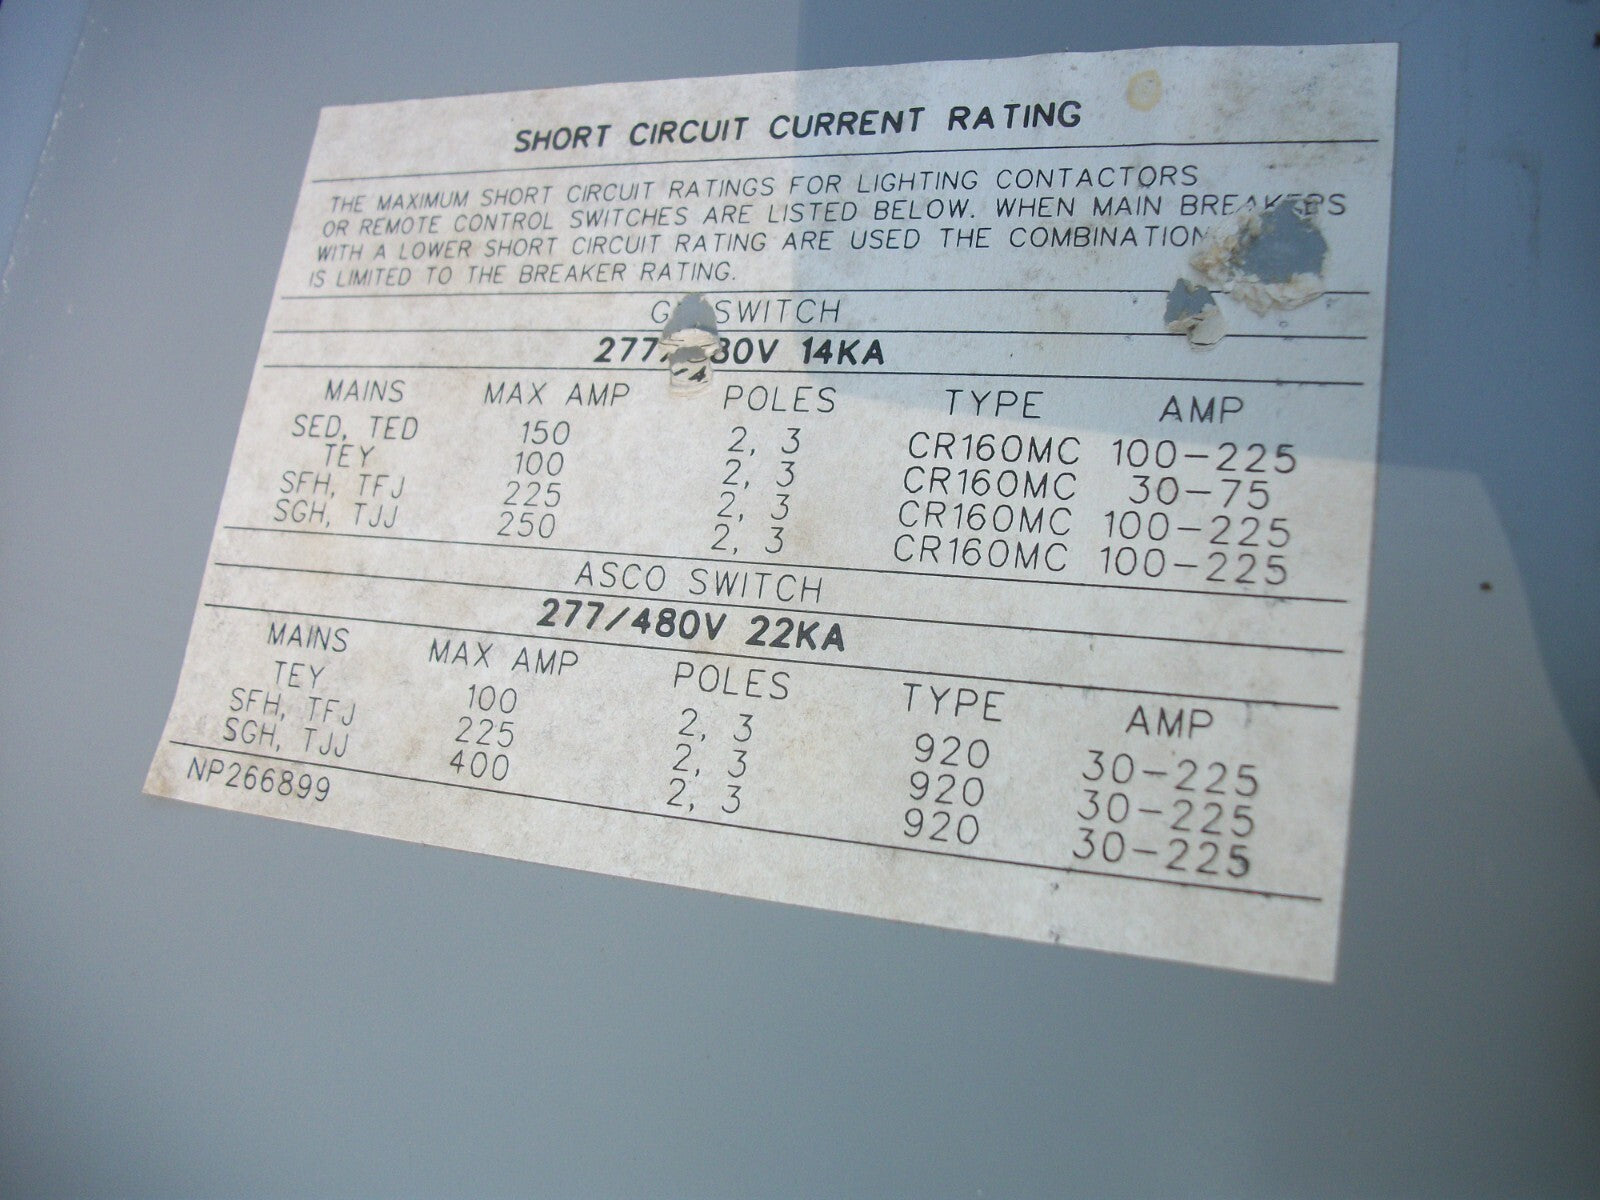 SHORT CIRCUIT CURRENT RATING
THE MAXIMUM SHORT CIRCUIT RATINGS FOR LIGHTING CONTACTORS
OR REMOTE CONTROL SWITCHES ARE LISTED BELOW. WHEN MAIN BREAKERS
WITH A LOWER SHORT CIRCUIT RATING ARE USED THE COMBINATION
IS LIMITED TO THE BREAKER RATING.
SWITCH
277/480V 14KA
MAINS MAX AMP POLES TYPE AMP
SED, TED 150 2, 3 CR160MC 100-225
TEY 100 2, 3 CR160MC 30-75
SFH, TFJ 225 2, 3 CR160MC 100-225
SGH, TJJ 250 2, 3 CR160MC 100-225
ASCO SWITCH
277/480V 22KA
MAINS MAX AMP POLES TYPE AMP
TEY 100 2, 3 920 30-225
SFH, TFJ 225 2, 3 920 30-225
SGH, TJJ 400 2, 3 920 30-225
NP266899